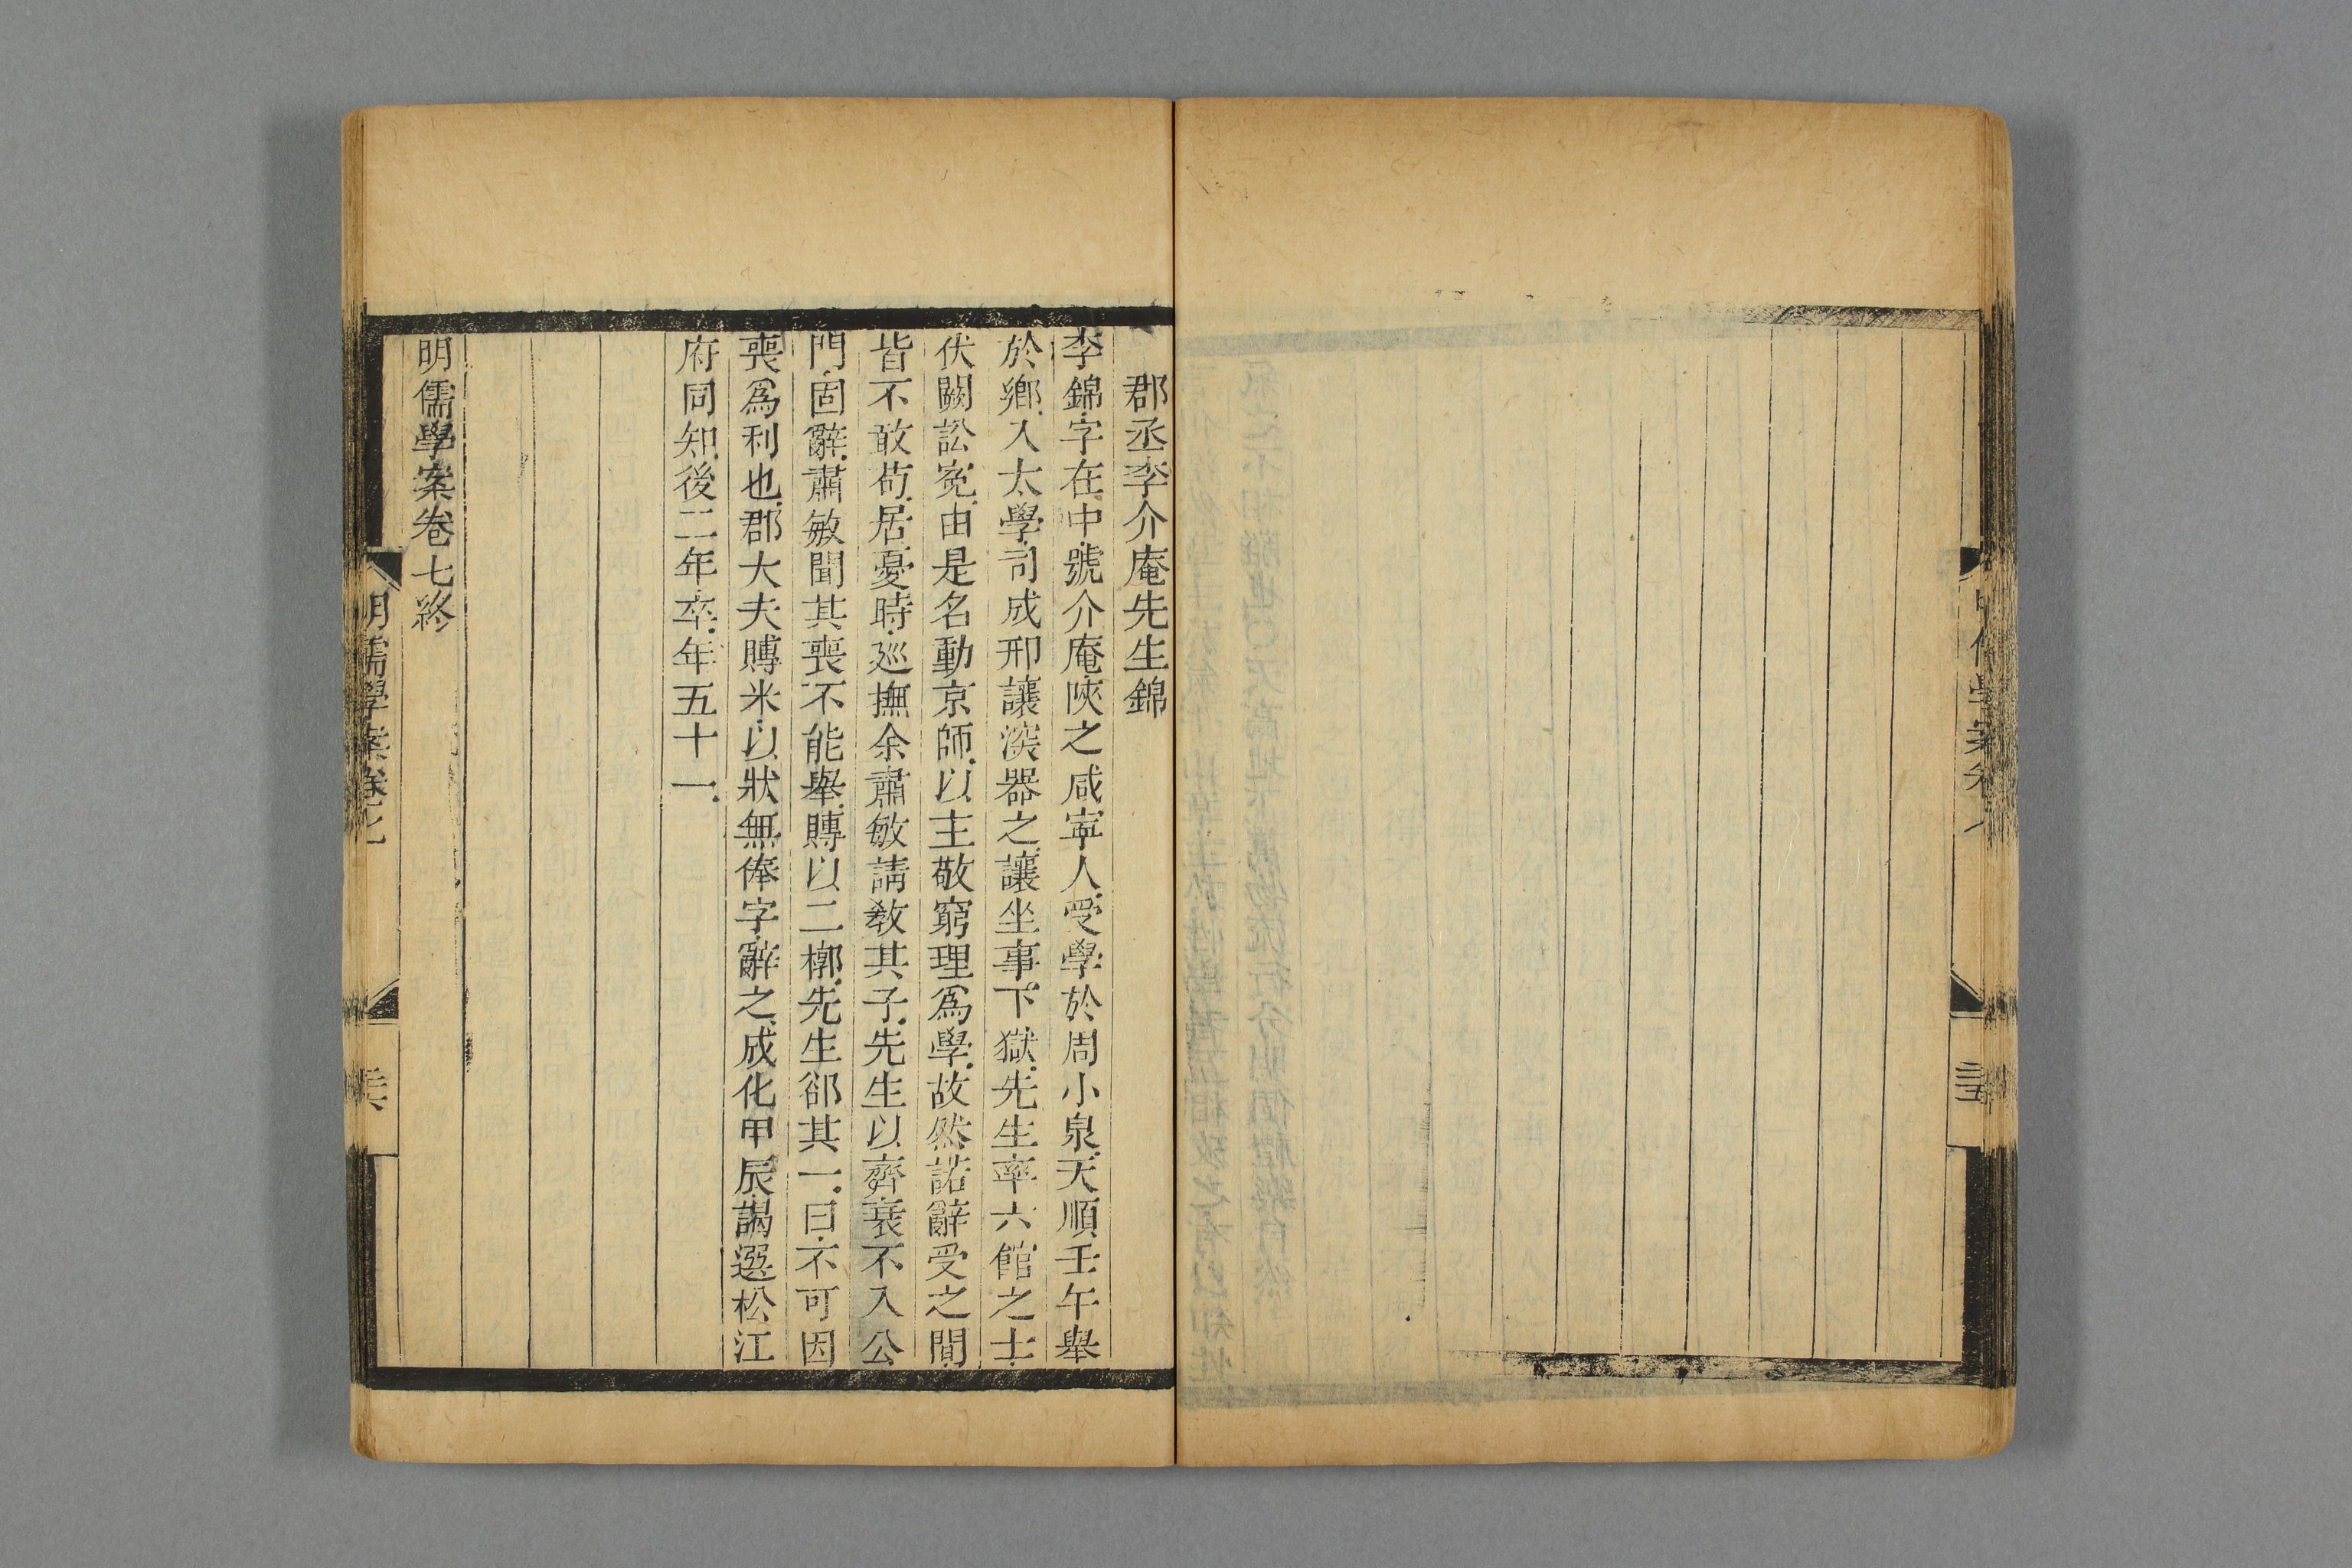 郡丞李介庵先生錦
李錦字在中號介庵陝之咸寧人受學於周小泉天順壬午舉
於鄉入太學司成邢讓深器之讓坐事下獄先生率六館之士
伏闕訟寃由是名動京師以主敬窮理爲學故然諾辭受之間
皆不敢苟居憂時巡撫余肅敏請教其子先生以齊衰不入公
門固辭肅敏聞其喪不能舉賻以二槨先生郤其一曰不可因
喪爲利也郡大夫賻米以狀無俸字辭之成化甲辰謁選松江
府同知後二年卒年五十一
明儒學案卷七終
明儒學案卷七